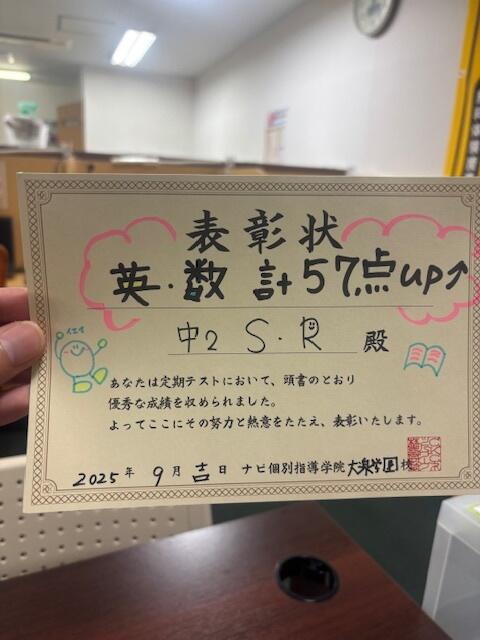 表彰状
英・数 計57点up↑
中2 S・R 殿
イエイ
あなたは定期テストにおいて、頭書のとおり
優秀な成績を収められました。
よってここにその努力と熱意をたたえ、表彰いたします。
2025年 9月吉日 ナビ個別指導学院 大楽毛校